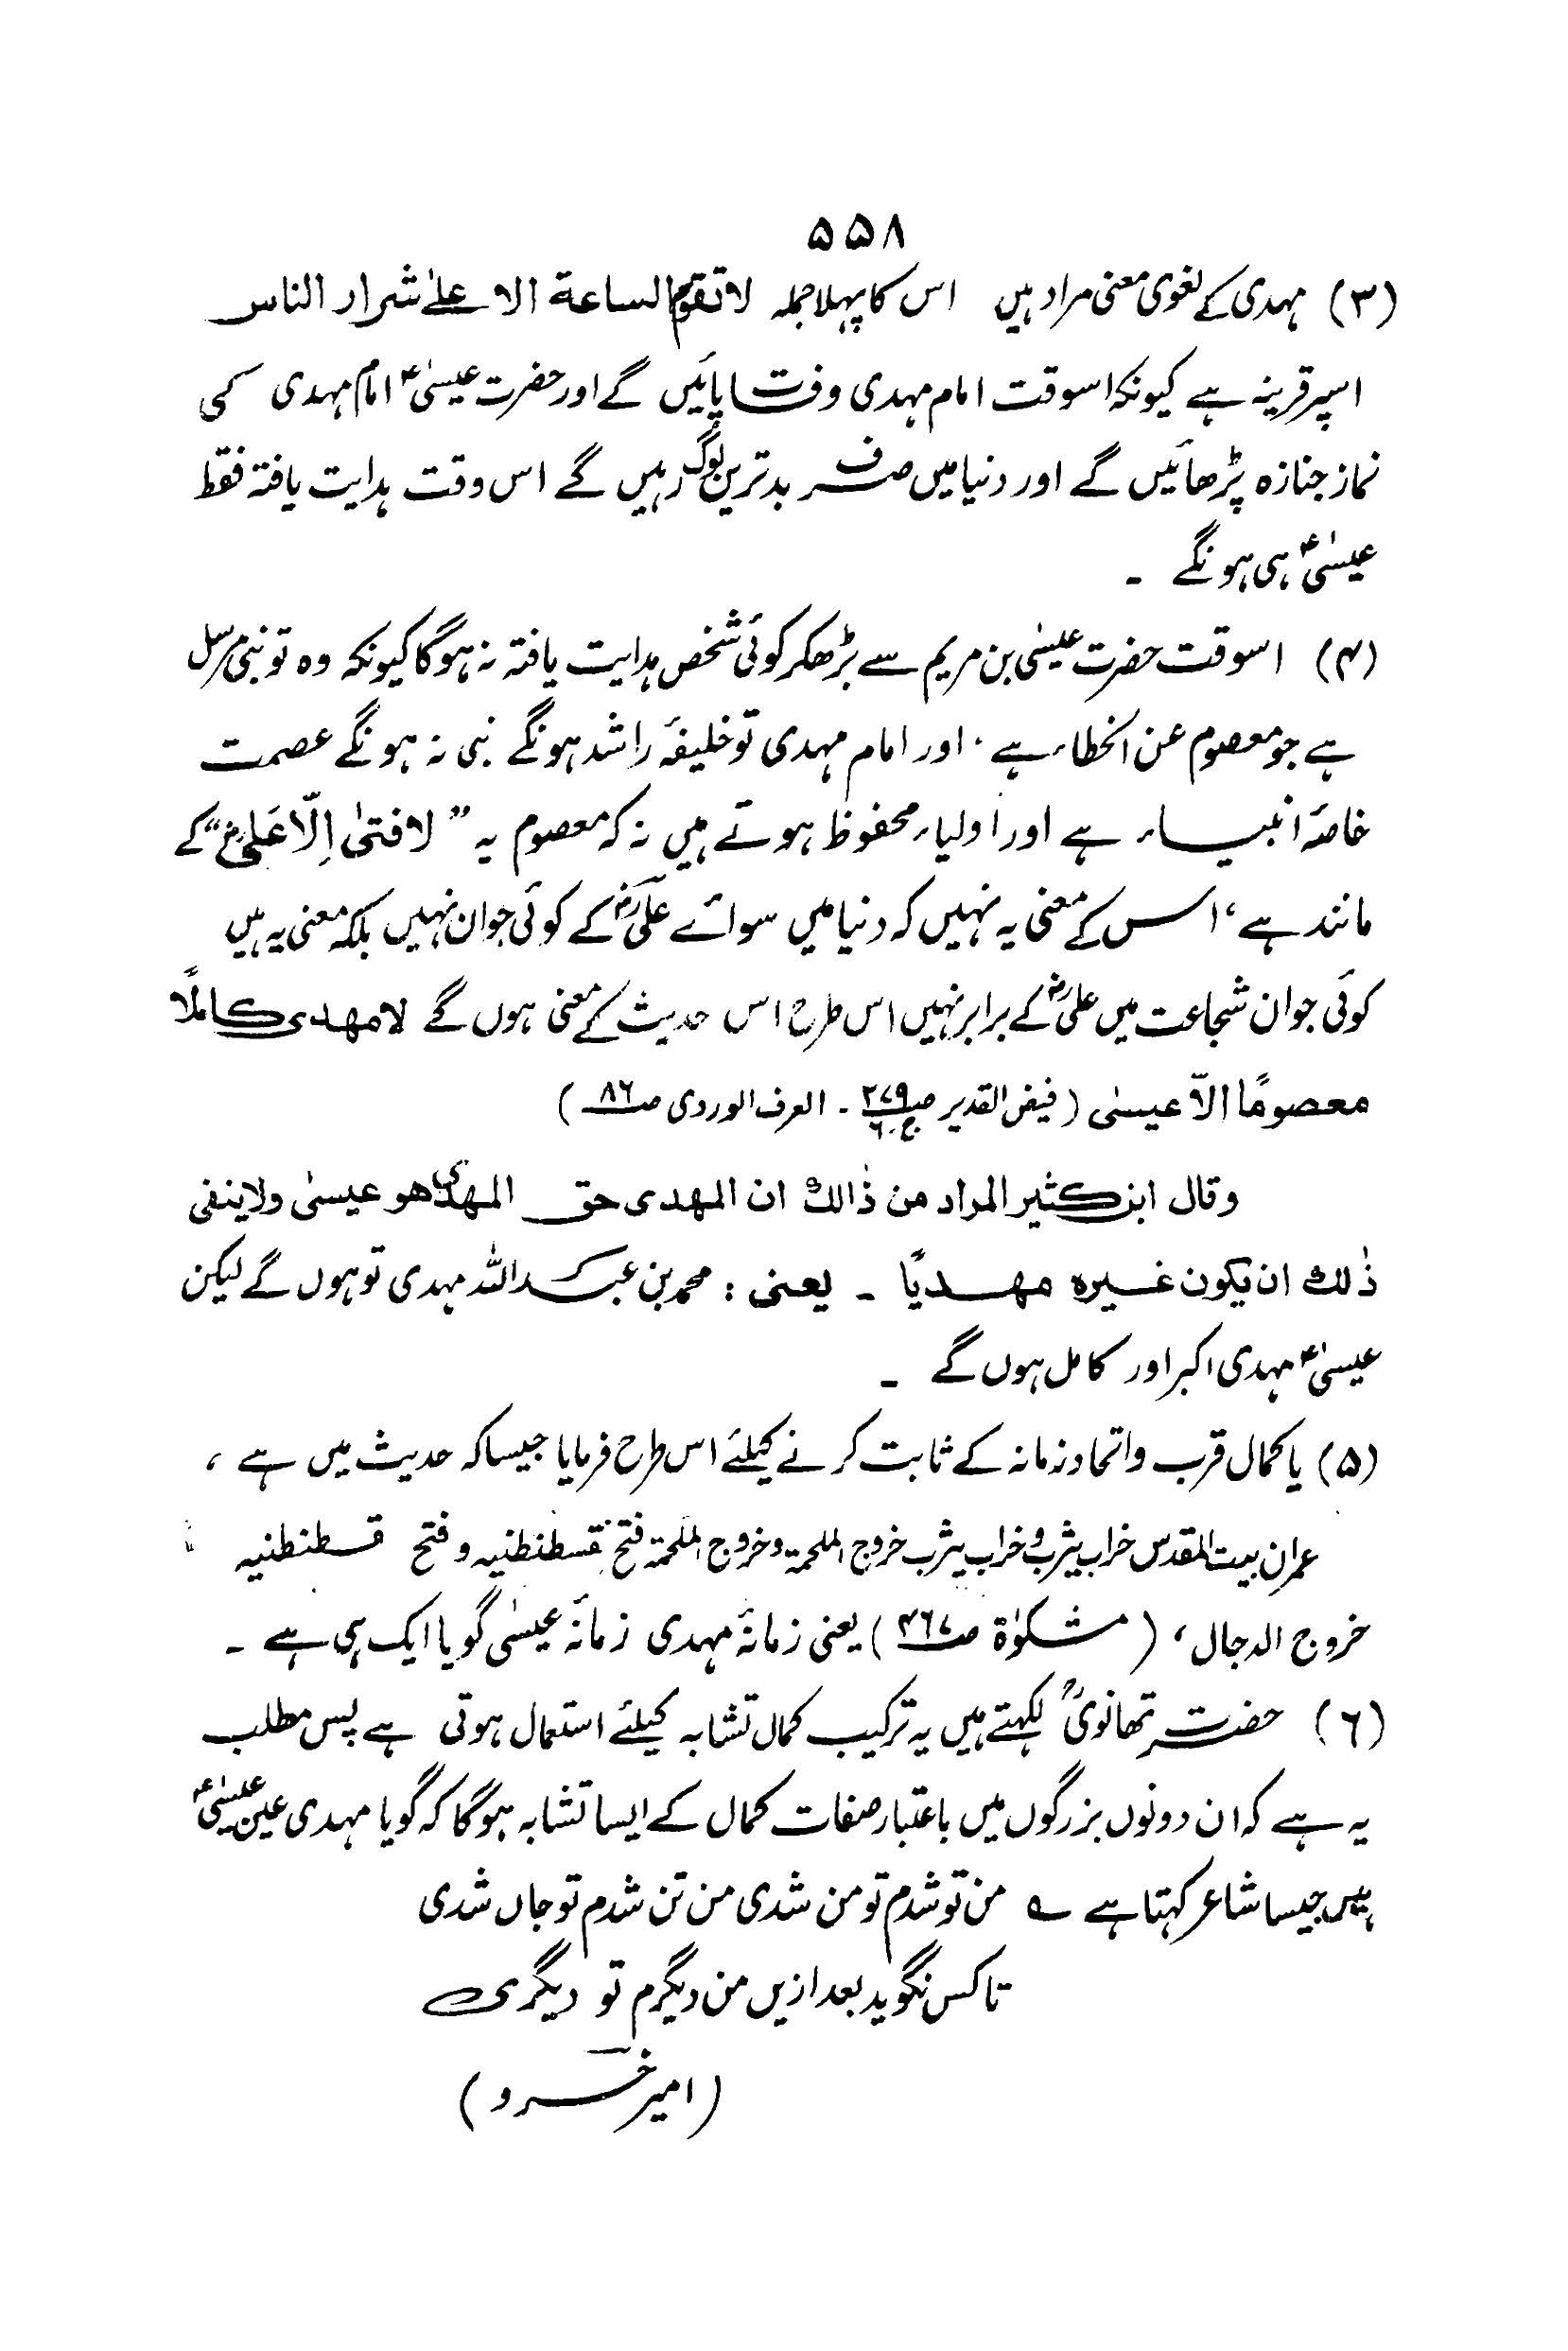 ۵۵۸
(۳) مہدی کے لغوی معنی مراد ہیں اس کا پہلا جملہ لا تقوم الساعة الا علےٰ شرار الناس
اسپر قرینہ ہے کیونکہ اسوقت امام مہدی وفت پائیں گے اور حضرت عیسیٰؑ امام مہدی کی
نماز جنازہ پڑھائیں گے اور دنیا میں صرف بدترین لوگ رہیں گے اس وقت ہدایت یافتہ فقط
عیسیٰؑ ہی ہونگے ۔
(۴) اسوقت حضرت عیسٰی بن مریم سے بڑھکر کوئی شخص ہدایت یافتہ نہ ہوگا کیونکہ وہ تو نبیٔ مرسل
ہے جو معصوم عن الخطاء ہے ۔ اور امام مہدی تو خلیفۂ راشد ہونگے نبی نہ ہونگے عصمت
خاصۂ انبیاء ہے اور اولیاء محفوظ ہوتے ہیں نہ کہ معصوم یہ ” لا فتیٰ اِلّا عَلیؓ “ کے
مانند ہے ، اس کے معنی یہ نہیں کہ دنیا میں سوائے علیؓ کے کوئی جوان نہیں بلکہ معنی یہ ہیں
کوئی جوان شجاعت میں علیؓ کے برابر نہیں اس طرح اس حدیث کے معنی ہوں گے لا مهدی کاملًا
معصومًا الاّ عیسیٰ (فیض القدیر ص۲۷۹ ج۶ ۔ العرف الوردی ص۸۶ )
وقال ابن کثیر المراد من ذٰالك ان المهدی حق المهدی هو عیسیٰ ولا ینفی
ذٰلك ان یکون غیره مهدیًا ۔ یعنی : محمد بن عبد اللہ مہدی تو ہوں گے لیکن
عیسیٰؑ مہدی اکبر اور کامل ہوں گے ۔
(۵) یا کمال قرب واتحاد زمانہ کے ثابت کرنے کیلئے اس طرح فرمایا جیسا کہ حدیث میں ہے ،
عمران بیت المقدس خراب یثرب وخراب یثرب خروج الملحمة وخروج الملحمة فتح قسطنطنیہ وفتح قسطنطنیہ
خروج الدجال ، (مشکوٰۃ ص۴۶۷) یعنی زمانۂ مہدی زمانۂ عیسٰی گویا ایک ہی ہے ۔
(۶) حضرت تھانویؒ لکھتے ہیں یہ ترکیب کمال تشابہ کیلئے استعمال ہوتی ہے پس مطلب
یہ ہے کہ ان دونوں بزرگوں میں باعتبار صفات کمال کے ایسا تشابہ ہوگا کہ گویا مہدی عین عیسیٰؑ
ہیں جیسا شاعر کہتا ہے ؎ من تو شدم تو من شدی من تن شدم تو جاں شدی
تا کس نگوید بعد ازیں من دیگرم تو دیگری
(امیر خسرو)